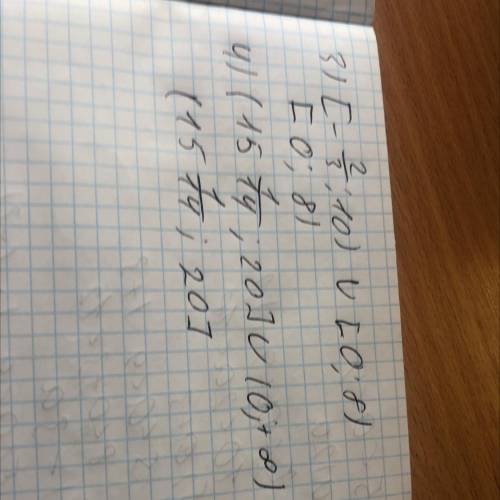 3) [-2/3; 10) ∪ [0; 8)
[0; 8)
4) (15 1/14; 20] ∪ (0; +∞)
(15 1/14; 20]